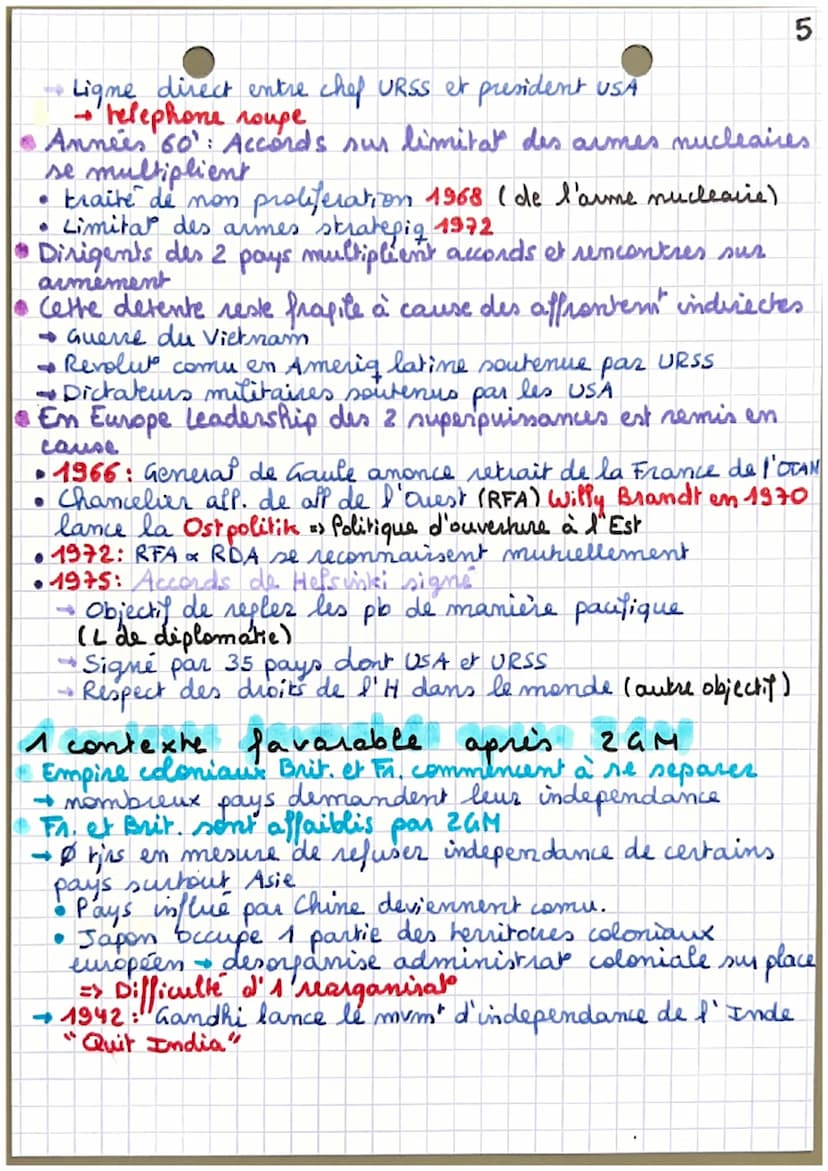 5
→ Ligne direct entre chef URSS et president USA
→ telephone rouge
• Années 60' : Accords sur limitat° des armes nucleaires
se multiplient
• traité de non proliferation 1968 (de l'arme nucleaire)
• Limitat° des armes strategiq 1972
• Dirigents des 2 pays multiplient accords et rencontres sur
armement
• Cette detente reste fragile à cause des affrontemt indirectes
→ Guerre du Vietnam
→ Revolut° comu en Ameriq latine soutenue par URSS
→ Dictateurs militaires soutenus par les USA
• En Europe leadership des 2 superpuissances est remis en
cause
• 1966 : General de Gaule anonce retrait de la France de l'OTAN
• Chancelier all. de all de l'Ouest (RFA) Willy Brandt en 1970
lance la Ostpolitik => Politique d'ouverture à l'Est
• 1972 : RFA & RDA se reconnaissent mutuellement
• 1975 : Accords de Helsinski signé
→ Objectif de regler les pb de manière pacifique
(L de diplomatie)
→ Signé par 35 pays dont USA et URSS
→ Respect des droits de l'H dans le monde (autre objectif)
1 contexte favorable après 2GM
• Empire coloniaux Brit. et Fr. commencent à se separer
→ nombreux pays demandent leur independance
• Fr. et Brit. sont affaiblis par 2GM
→ Ø tjrs en mesure de refuser independance de certains
pays surtout Asie
• Pays influé par Chine deviennent comu.
• Japon occupe 1 partie des territoires coloniaux
européen → desorganise administrat° coloniale sur place
=> Difficulté d'1 reorganisat°
→ 1942 : Gandhi lance le mvmt d'independance de l'Inde
"Quit India"